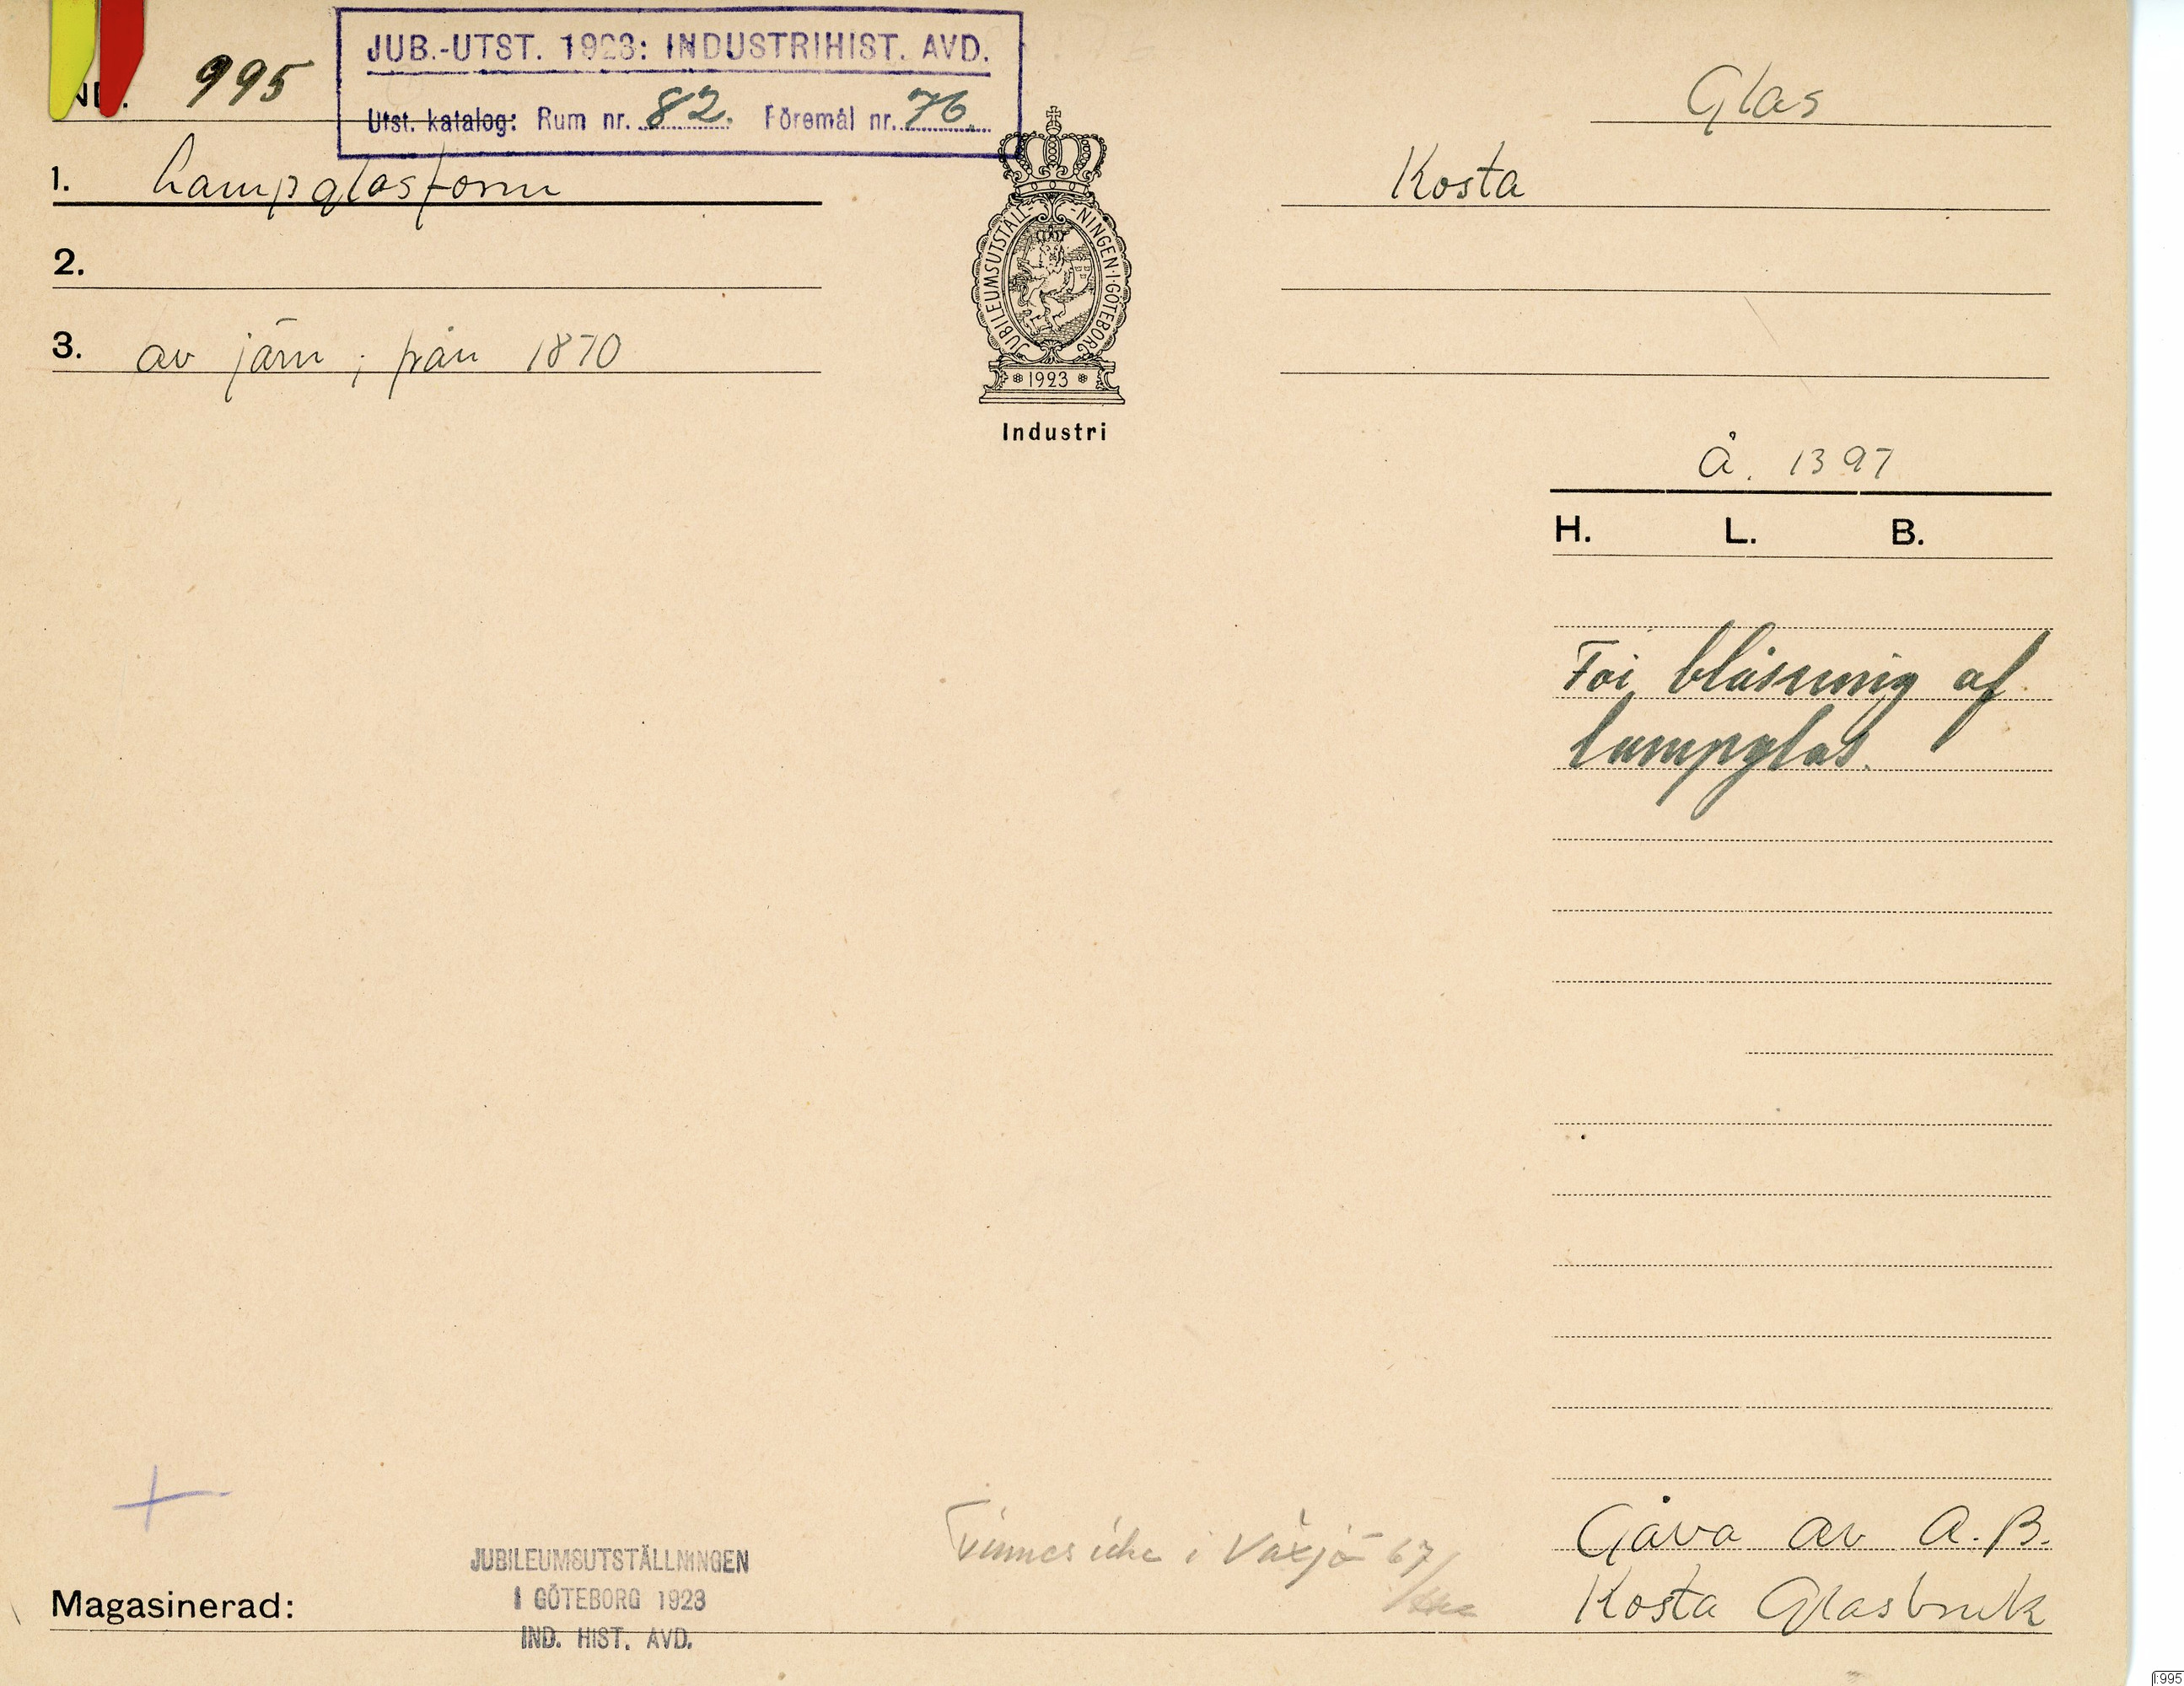 995
JUB.-UTST. 1923: INDUSTRIHIST. AVD.
Utst. katalog: Rum nr. 82. Föremål nr. 76.
Glas
1. Lampglasform
Kosta
2.
3. av järn; från 1870
JUBILEUMSUTSTÄLL-NINGEN·I·GÖTEBORG
1923
Industri
Å. 1397
H. L. B.
För blåsning af
lampglas.
Finnes icke i Växjö 67/
Gåva av A.B.
Kosta Glasbruk
JUBILEUMSUTSTÄLLNINGEN
I GÖTEBORG 1923
IND. HIST. AVD.
Magasinerad:
I:995